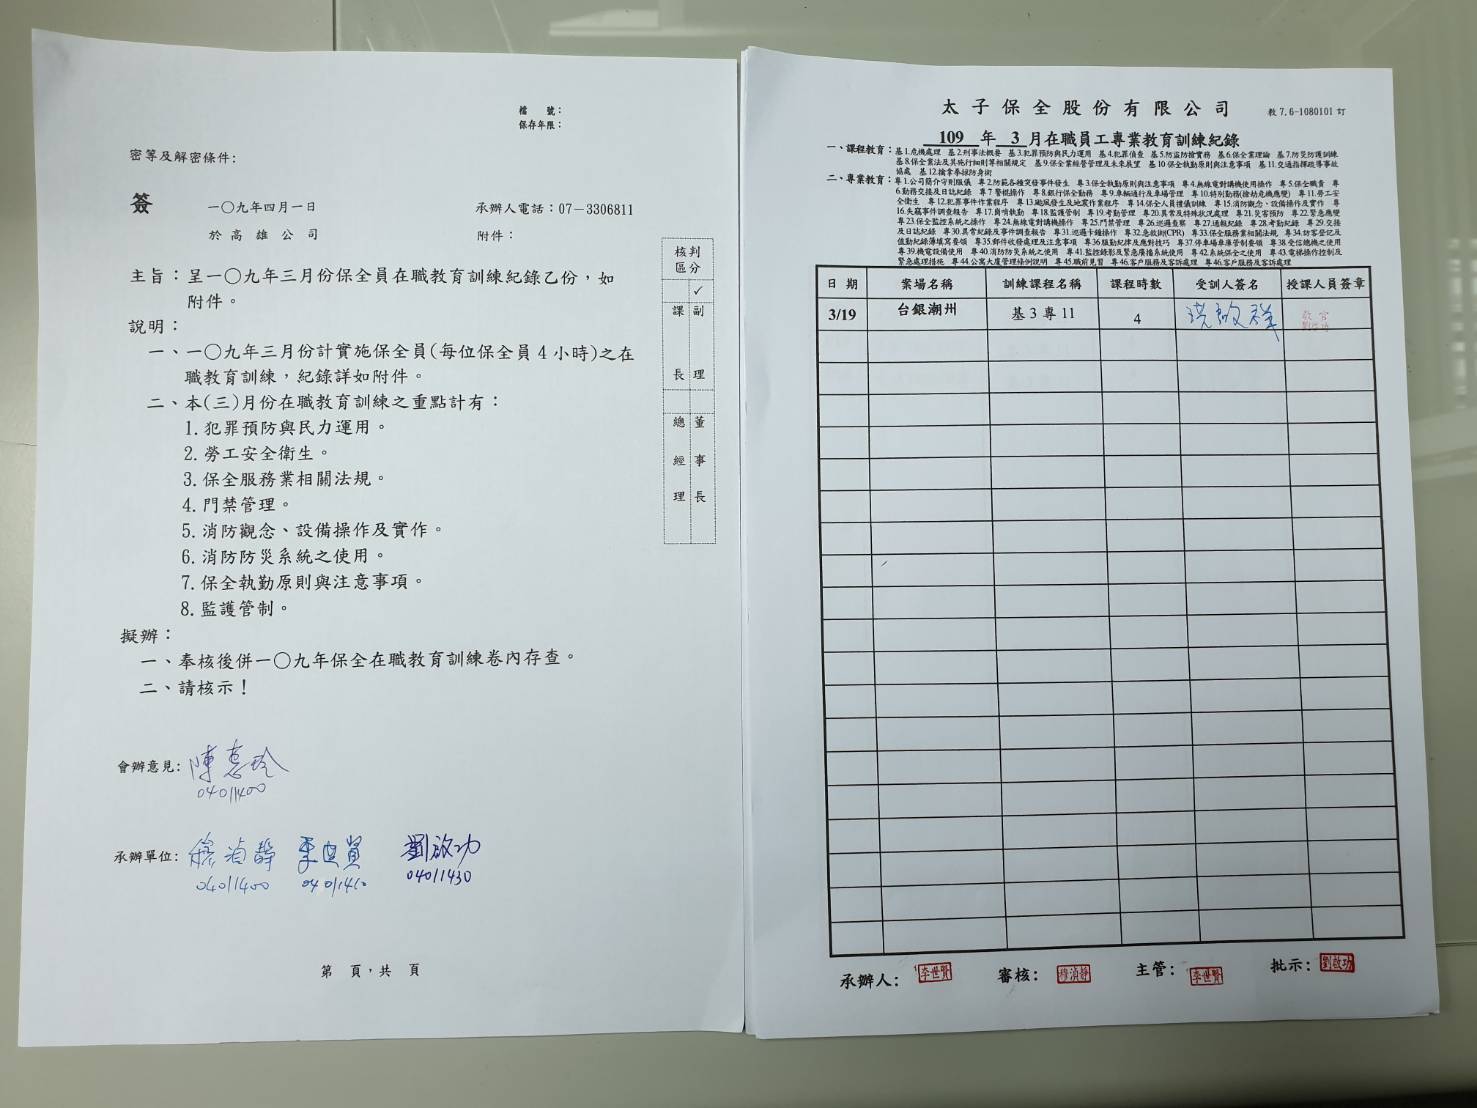 檔　號：
保存年限：
密等及解密條件：
簽
一〇九年四月一日
於高雄公司
承辦人電話：07－3306811
附件：
核判
區分
✓
課長
副理
總經理
董事長
主旨：呈一〇九年三月份保全員在職教育訓練紀錄乙份，如
附件。
說明：
一、一〇九年三月份計實施保全員(每位保全員4小時)之在
職教育訓練，紀錄詳如附件。
二、本(三)月份在職教育訓練之重點計有：
1.犯罪預防與民力運用。
2.勞工安全衛生。
3.保全服務業相關法規。
4.門禁管理。
5.消防觀念、設備操作及實作。
6.消防防災系統之使用。
7.保全執勤原則與注意事項。
8.監護管制。
擬辦：
一、奉核後併一〇九年保全在職教育訓練卷內存查。
二、請核示！
會辦意見：陳惠玲
04011400
承辦單位：
李世賢 劉啟功
04011400 04011430
第　頁，共　頁
太子保全股份有限公司
教7.6-1080101訂
109 年 3 月在職員工專業教育訓練紀錄
一、課程教育：基1.危機處理 基2.刑事法概要 基3.犯罪預防與民力運用 基4.犯罪偵查 基5.防盜防搶實務 基6.保全業理論 基7.防災防護訓練
基8.保全業法及其施行細則等相關規定 基9.保全業經營管理及未來展望 基10.保全執勤原則與注意事項 基11.交通指揮疏導事故
協處 基12.擒拿拳操防身術
二、專業教育：專1.公司簡介守則服儀 專2.防範各種突發事件發生 專3.保全執勤原則與注意事項 專4.無線電對講機使用操作 專5.保全職責 專
6.勤務交接及日誌紀錄 專7.警棍操作 專8.銀行保全勤務 專9.車輛通行及車場管理 專10.特別勤務(搶劫危機應變) 專11.勞工安
全衛生 專12.犯罪事件作業程序 專13.颱風發生及地震作業程序 專14.保全人員禮儀訓練 專15.消防觀念、設備操作及實作 專
16.失竊事件調查報告 專17.崗哨執勤 專18.監護管制 專19.考勤管理 專20.異常及特殊狀況處理 專21.災害預防 專22.緊急應變
專23.保全監控系統之操作 專24.無線電對講機操作 專25.門禁管理 專26.巡邏查察 專27.通報紀錄 專28.考勤紀錄 專29.交接
及日誌紀錄 專30.異常紀錄及事件調查報告 專31.巡邏卡鐘操作 專32.急救訓(CPR) 專33.保全服務業相關法規 專34.訪客登記及
值勤紀錄簿填寫要領 專35.郵件收發處理及注意事項 專36.服勤紀律及應對技巧 專37.停車場車庫管制要領 專38.受信總機之使用
專39.機電設備使用 專40.消防防災系統之使用 專41.監控錄影及緊急廣播系統使用 專42.系統保全之使用 專43.電梯操作控制及
緊急處理措施 專44.公寓大廈管理條例說明 專45.職前見習 專46.客戶服務及客訴處理 專46.客戶服務及客訴處理
日 期 案場名稱 訓練課程名稱 課程時數 受訓人簽名 授課人員簽章
3/19 台銀潮州 基3專11 4
承辦人：李世賢 審核： 主管：李世賢 批示：劉啟功